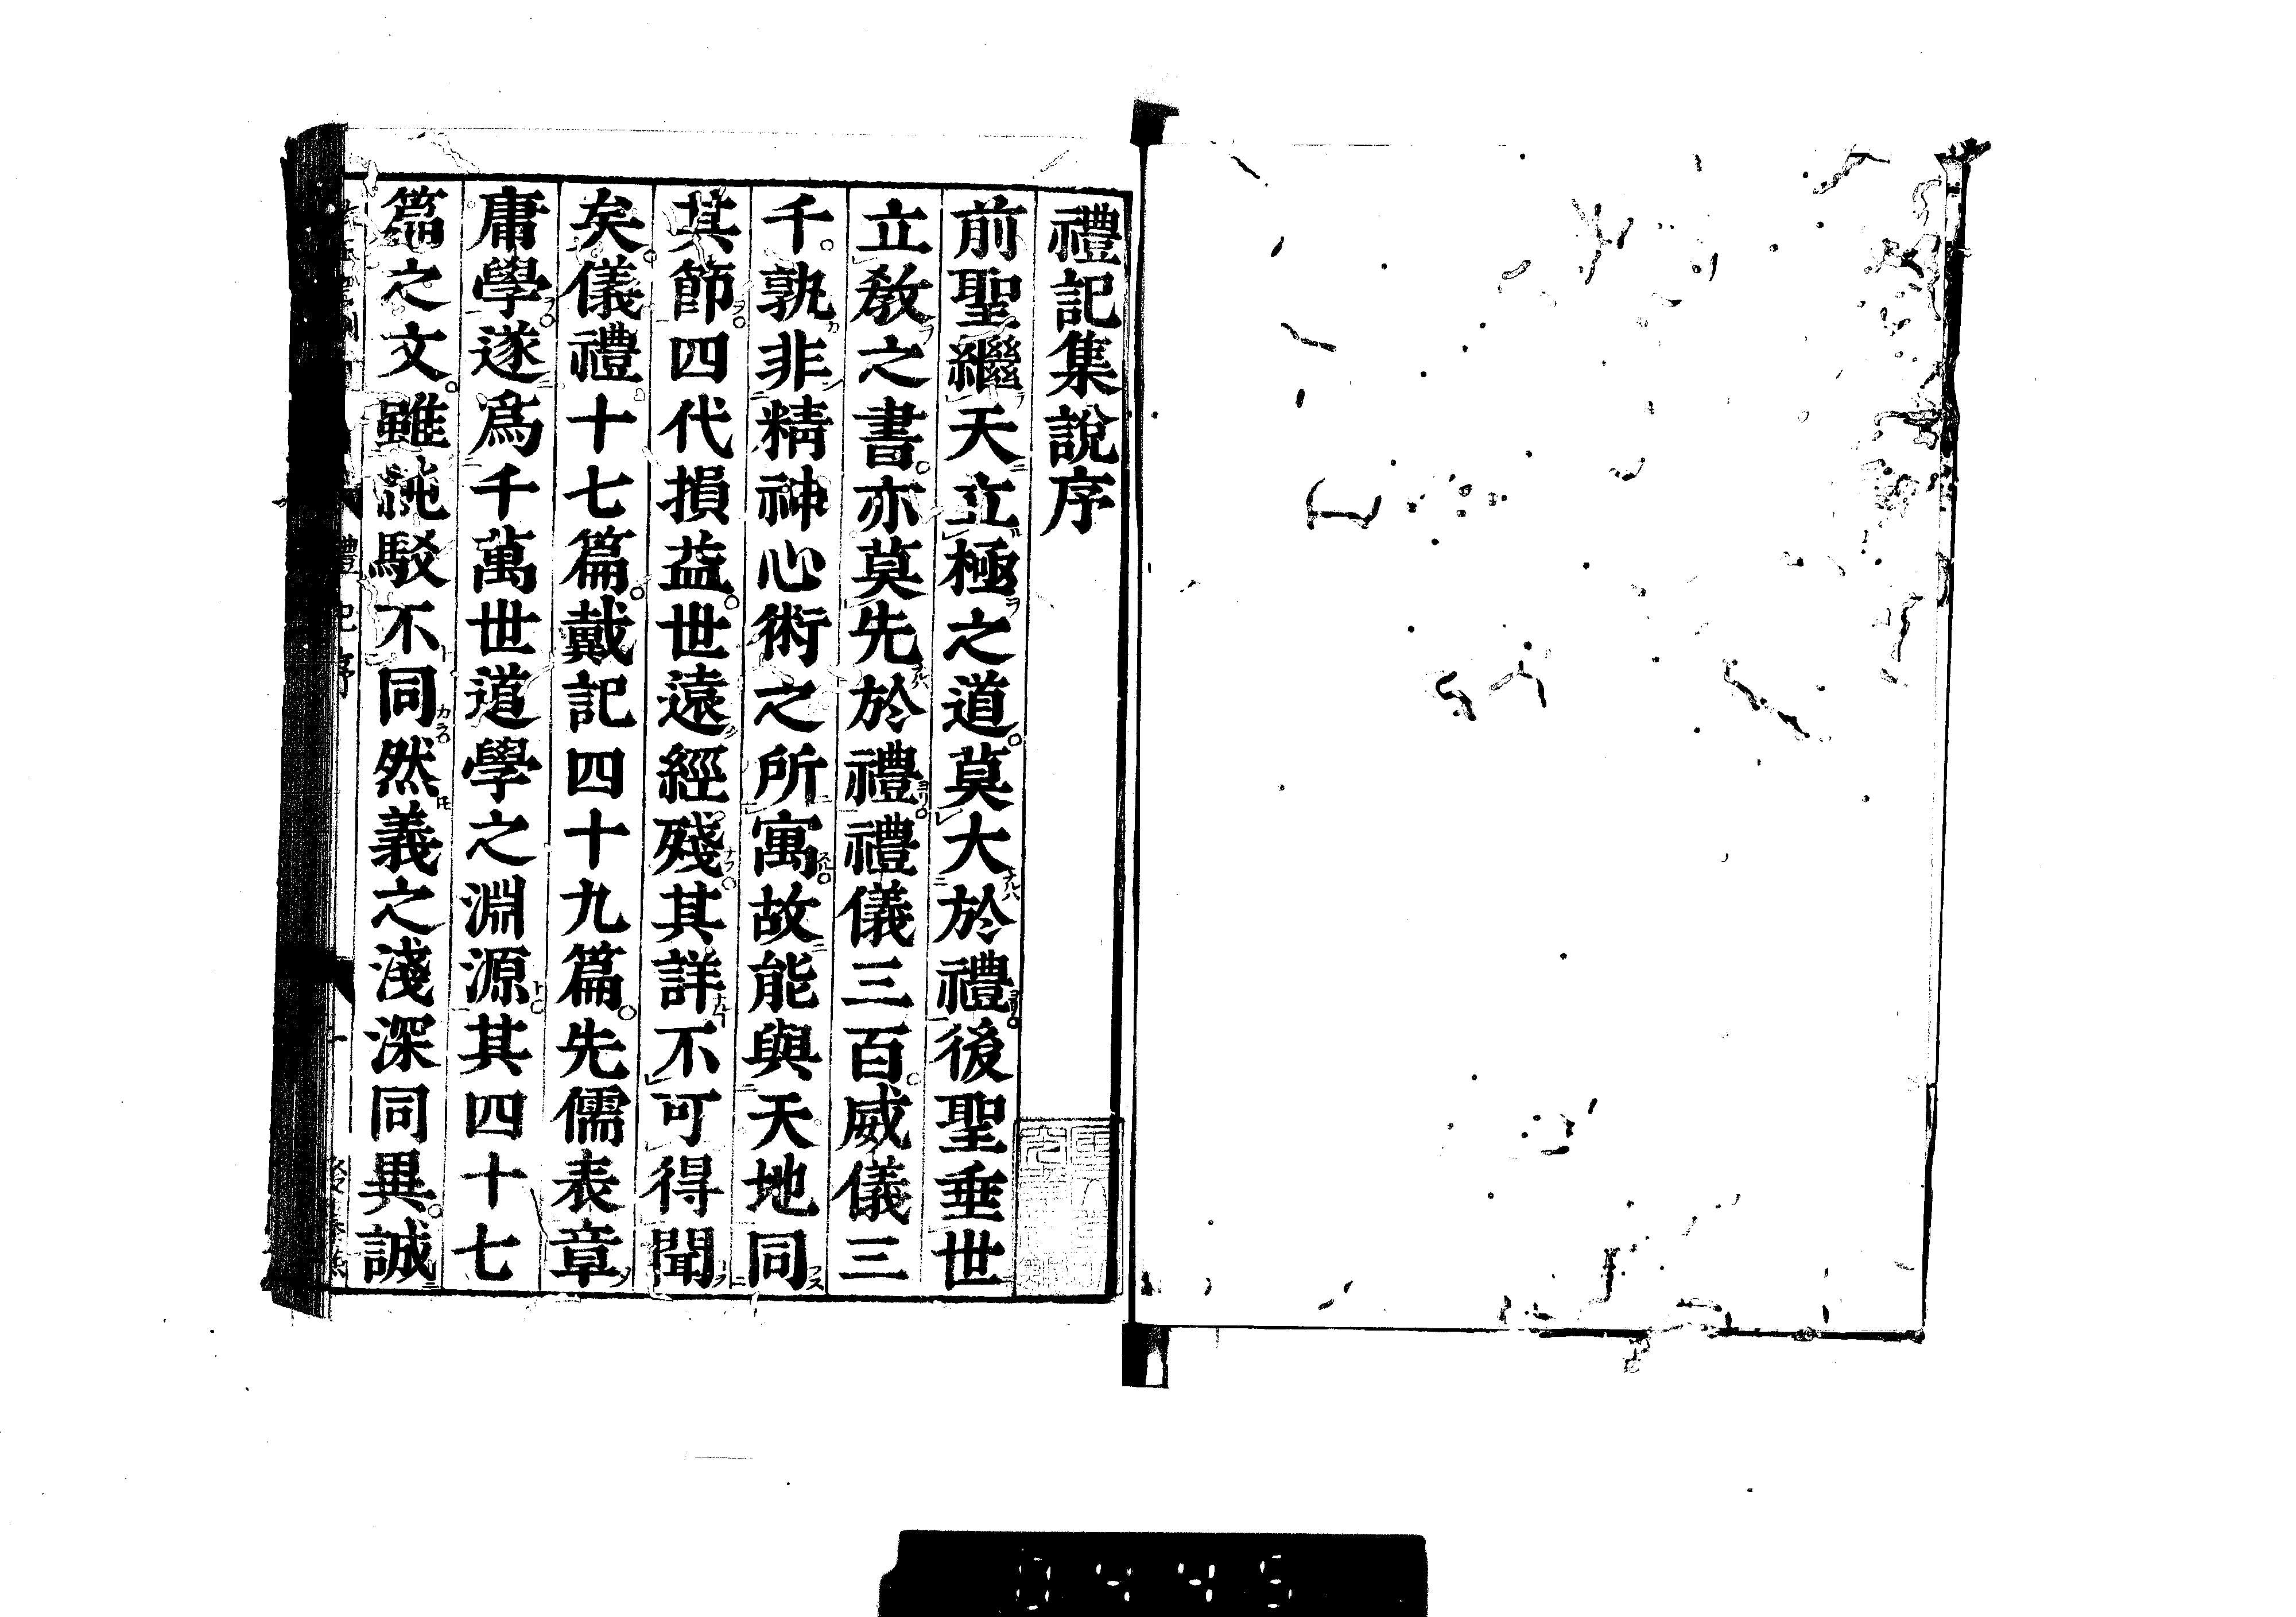 禮記集說序
前聖繼天立極之道莫大於禮後聖垂世
立敎之書亦莫先於禮禮儀三百威儀三
千孰非精神心術之所寓故能與天地同
其節四代損益世遠經殘其詳不可得聞
矣儀禮十七篇戴記四十九篇先儒表章
庸學遂爲千萬世道學之淵源其四十七
篇之文雖純駁不同然義之淺深同異誠
禮記序
0445